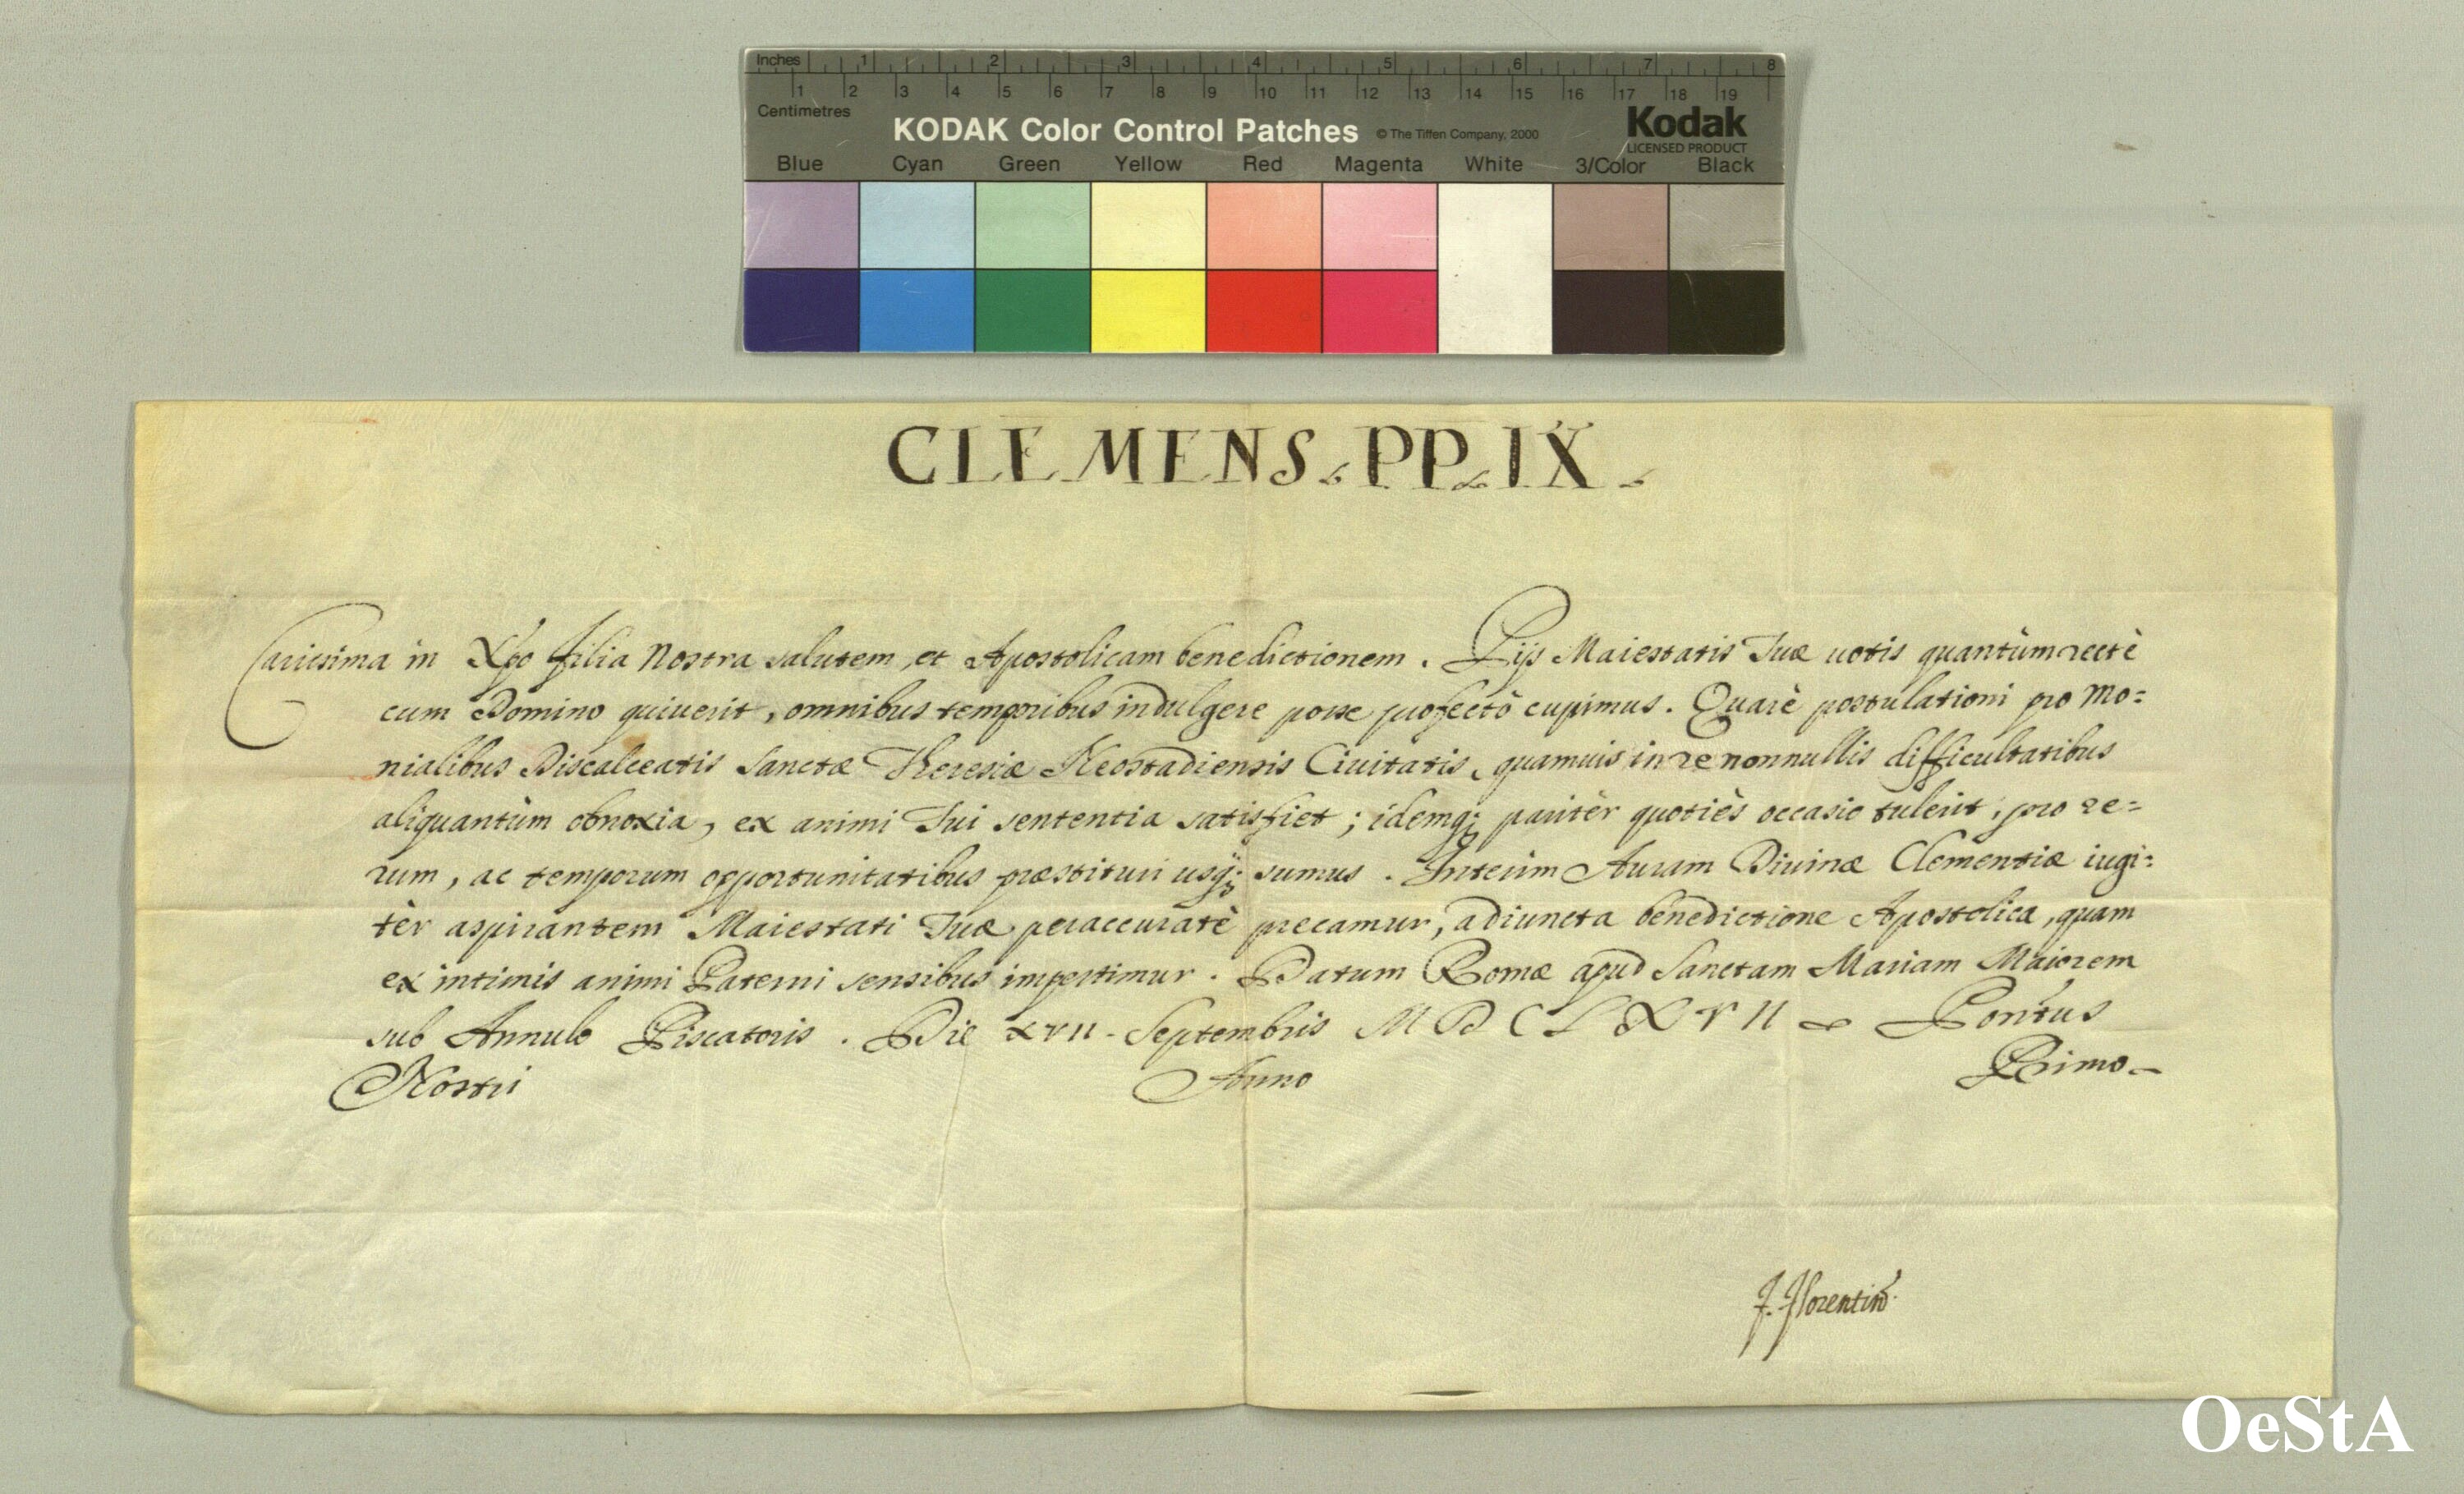 Inches 1 2 3 4 5 6 7 8
1 2 3 4 5 6 7 8 9 10 11 12 13 14 15 16 17 18 19
Centimetres
KODAK Color Control Patches © The Tiffen Company, 2000 Kodak
LICENSED PRODUCT
Blue Cyan Green Yellow Red Magenta White 3/Color Black
CLEMENS. PP. IX.
Carissima in Xpo filia Nostra salutem, et Apostolicam benedictionem. Pijs Maiestatis Tuæ uotis quantùm rectè
cum Domino quiuerit, omnibus temporibus indulgere posse profectò cupimus. Quarè postulationi pro Mo=
nialibus Discalceatis Sanctæ Theresiæ Neostadiensis Ciuitatis, quamuis in re nonnullis difficultatibus
aliquantùm obnoxia, ex animi Tui sententia satisfiet; idemq; paritèr quotiès occasio tulerit, pro re=
rum, ac temporum opportunitatibus præstituri usq; sumus. Interim Auram Diuinæ Clementiæ iugi=
tèr aspirantem Maiestati Tuæ peraccuratè precamur, adiuncta benedictione Apostolica, quam
ex intimis animi Paterni sensibus impertimur. Datum Romæ apud Sanctam Mariam Maiorem
sub Annulo Piscatoris. Die XVII. Septembris MDCLXVII Pontus
Nostri Anno Primo
F. Florentin
OeStA